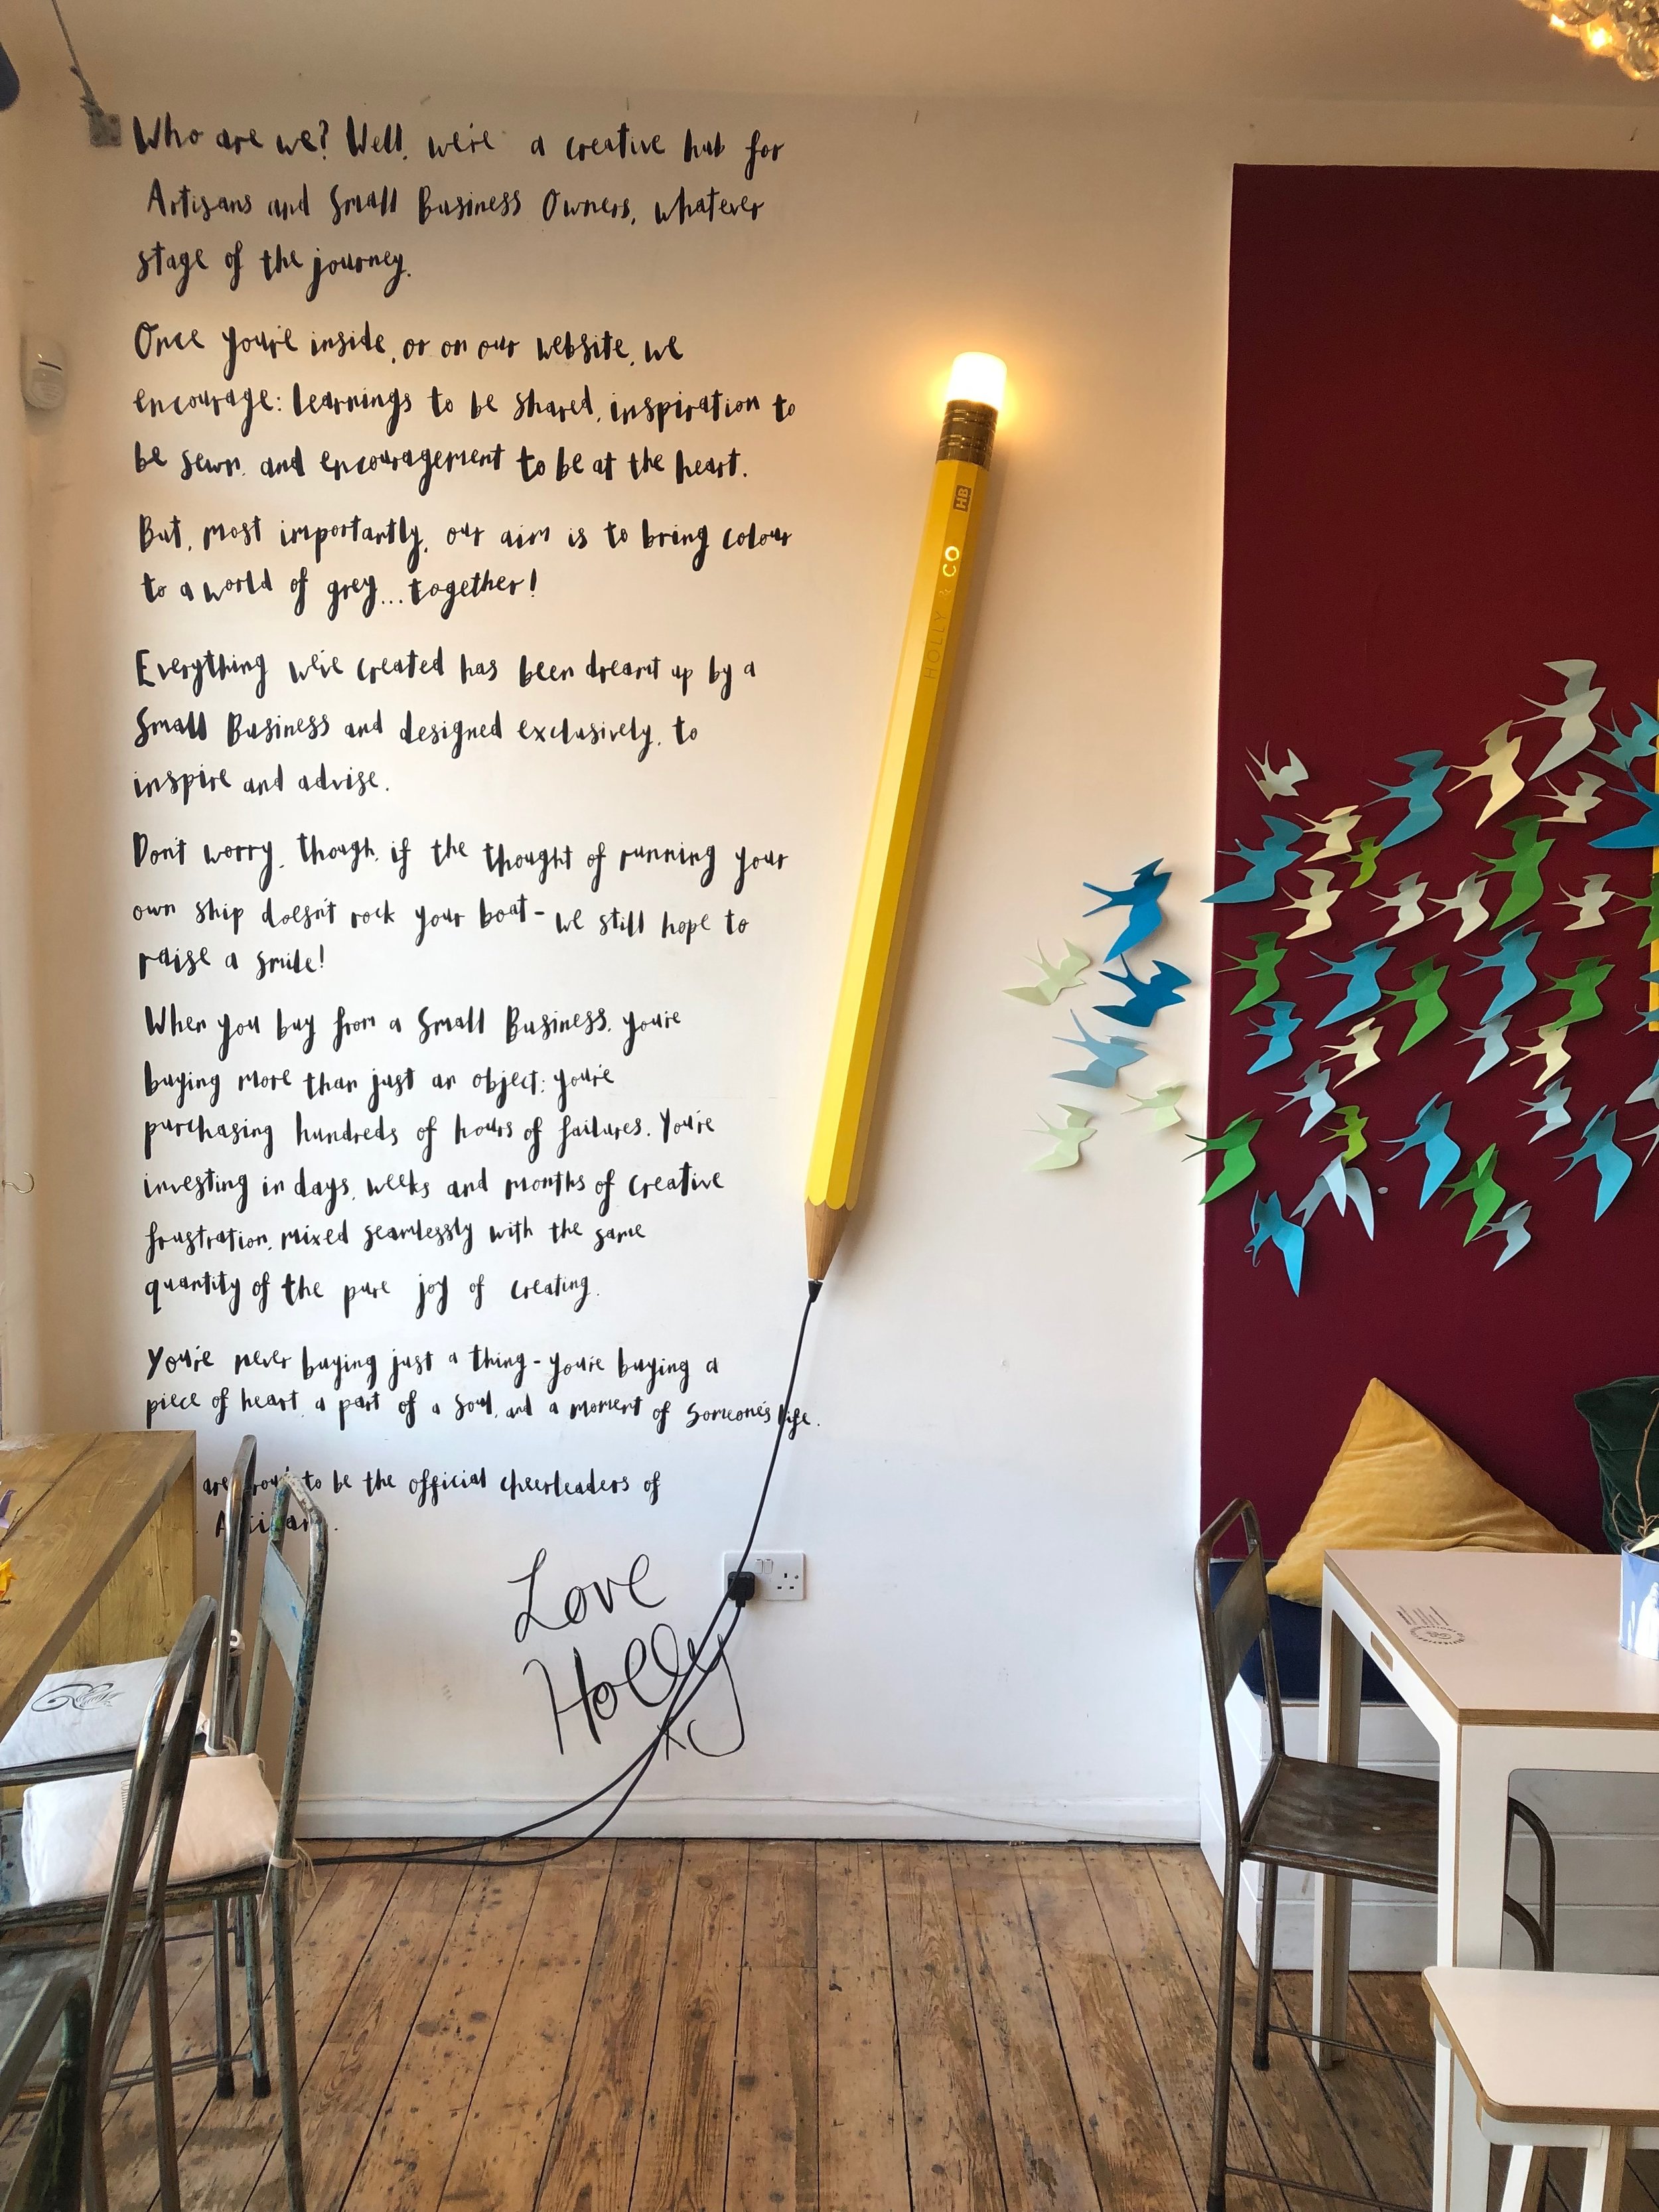 Who are we? Well, we're a creative hub for
Artisans and Small Business Owners, whatever
stage of the journey.
Once you're inside, or on our website, we
encourage: learnings to be shared, inspiration to
be sewn, and encouragement to be at the heart.
But, most importantly, our aim is to bring colour
to a world of grey... together!
Everything we've created has been dreamt up by a
Small Business and designed exclusively, to
inspire and advise.
Don't worry, though, if the thought of running your
own ship doesn't rock your boat - we still hope to
raise a smile!
When you buy from a Small Business, you're
buying more than just an object: you're
purchasing hundreds of hours of failures. You're
investing in days, weeks and months of creative
frustration, mixed seamlessly with the same
quantity of the pure joy of creating.
You're never buying just a thing - you're buying a
piece of heart, a part of a soul, and a moment of someone's life.
are to be the official cheerleaders of
Love
Holly
x
HB
HOLLY & CO